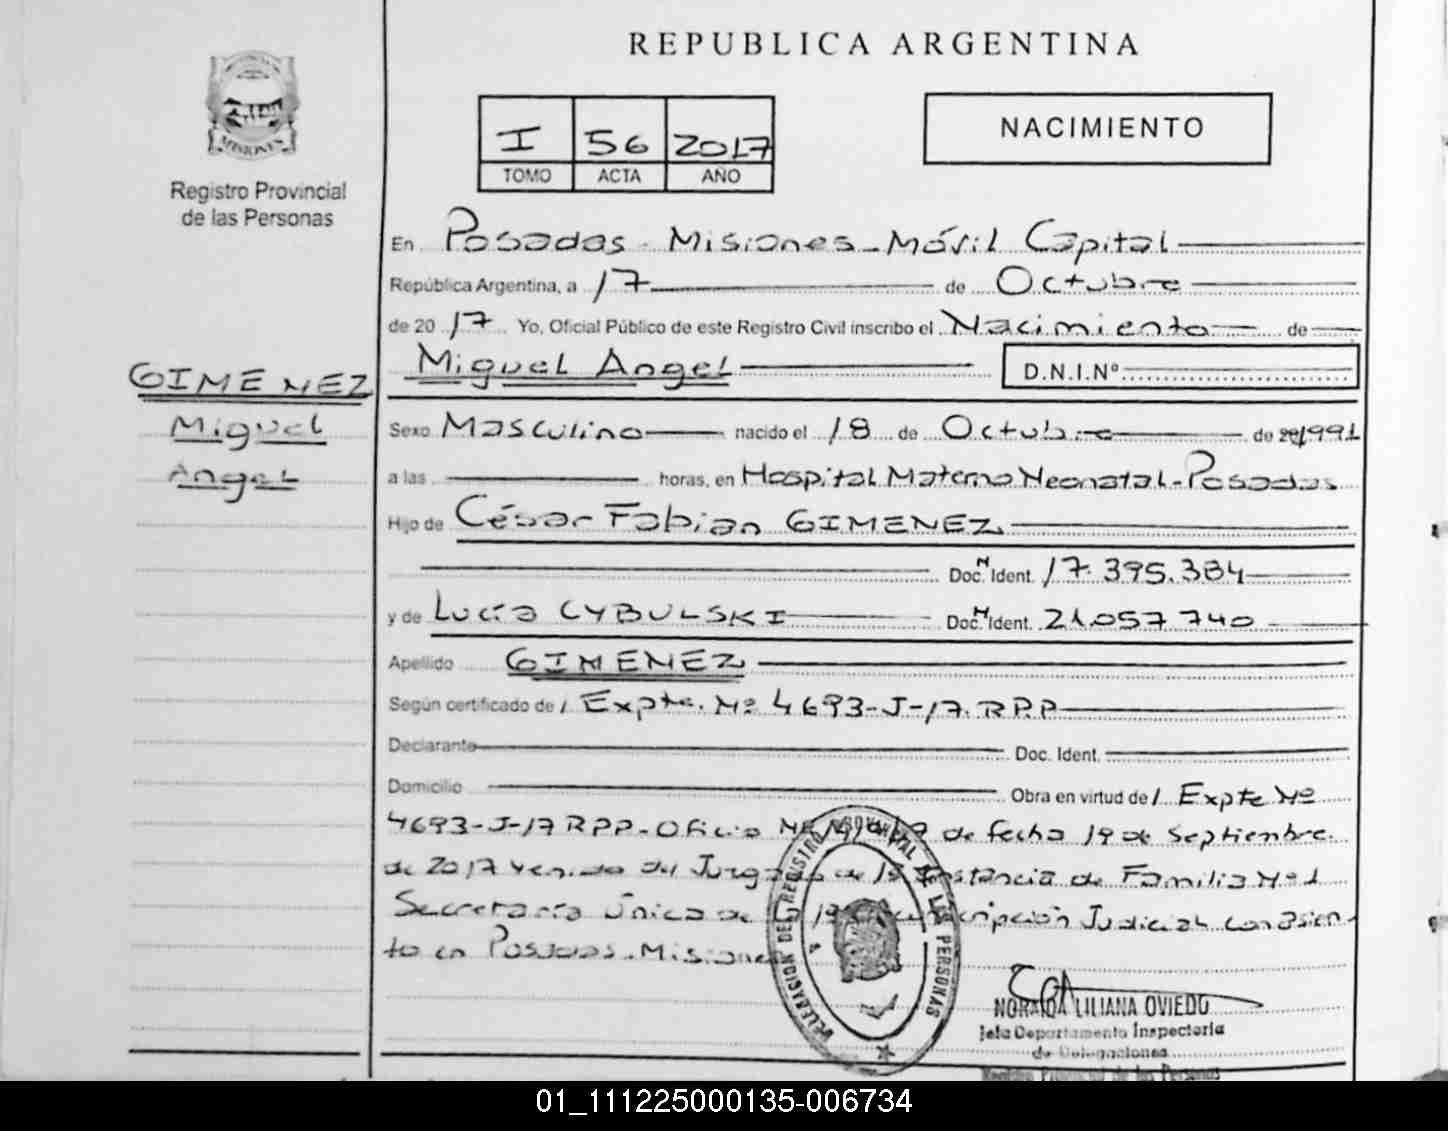 REPUBLICA ARGENTINA
MISIONES
Registro Provincial
de las Personas
I 56 2017
TOMO ACTA AÑO
NACIMIENTO
En Posadas - Misiones - Móvil Capital
República Argentina, a 17 de Octubre
de 20 17 Yo, Oficial Público de este Registro Civil inscribo el Nacimiento de
Miguel Angel D.N.I.Nº
GIMENEZ
Miguel
Angel
Sexo Masculino nacido el 18 de Octubre de 1991
a las horas, en Hospital Materno Neonatal - Posadas
Hijo de César Fabian GIMENEZ
Doc. Ident. 17.395.384
y de Lucía CYBULSKI Doc. Ident. 21.057.740
Apellido GIMENEZ
Según certificado de / Expte. Nº 4693-J-17. R.P.P
Declarante Doc. Ident.
Domicilio Obra en virtud de / Expte Nº
4693-J-17 RPP - Oficio de fecha 19 de Septiembre
de 2017 venido del Juzgado de 1º Instancia de Familia Nº 1
Secretaría Única de la 1º Circunscripción Judicial con asien-
to en Posadas - Misiones
DELEGACION DEL REGISTRO PROVINCIAL DE LAS PERSONAS
LILIANA OVIEDO
Jefa Departamento Inspectoría
de Delegaciones
Registro Provincial de las Personas
01_111225000135-006734